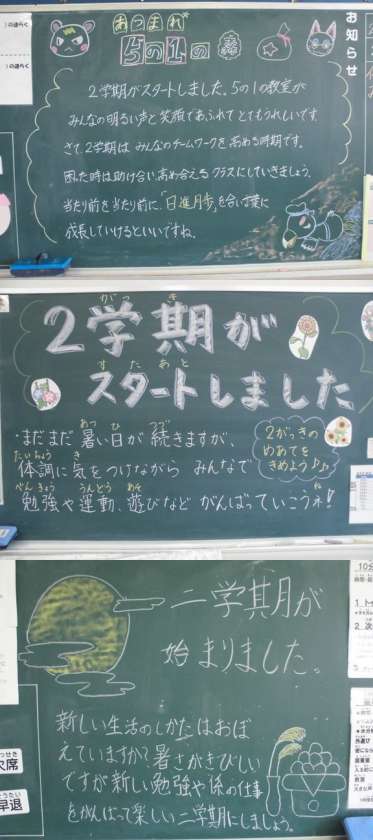 あつまれ
5の1の森
お知らせ
2学期がスタートしました。5の1の教室が
みんなの明るい声と笑顔であふれてとてもうれしいです。
さて、2学期はみんなのチームワークを高める時期です。
困った時は助け合い、高め合えるクラスにしていきましょう。
当たり前を当たり前に、「日進月歩」を合い言葉に
成長していけるといいですね。
がっき
2学期が
すたあと
スタートしました
あつ ひ つづ
まだまだ暑い日が続きますが、
たいちょう き
体調に気をつけながら みんなで
べんきょう うんどう あそ
勉強や運動、遊びなど がんばっていこうネ!
2がっきの
めあてを
きめよう♪♪
二学期が
始まりました。
新しい生活のしかたはおぼ
えていますか?暑さがきびしい
ですが新しい勉強や係の仕事
をがんばって楽しい二学期にしましょう。
欠席
早退
10分